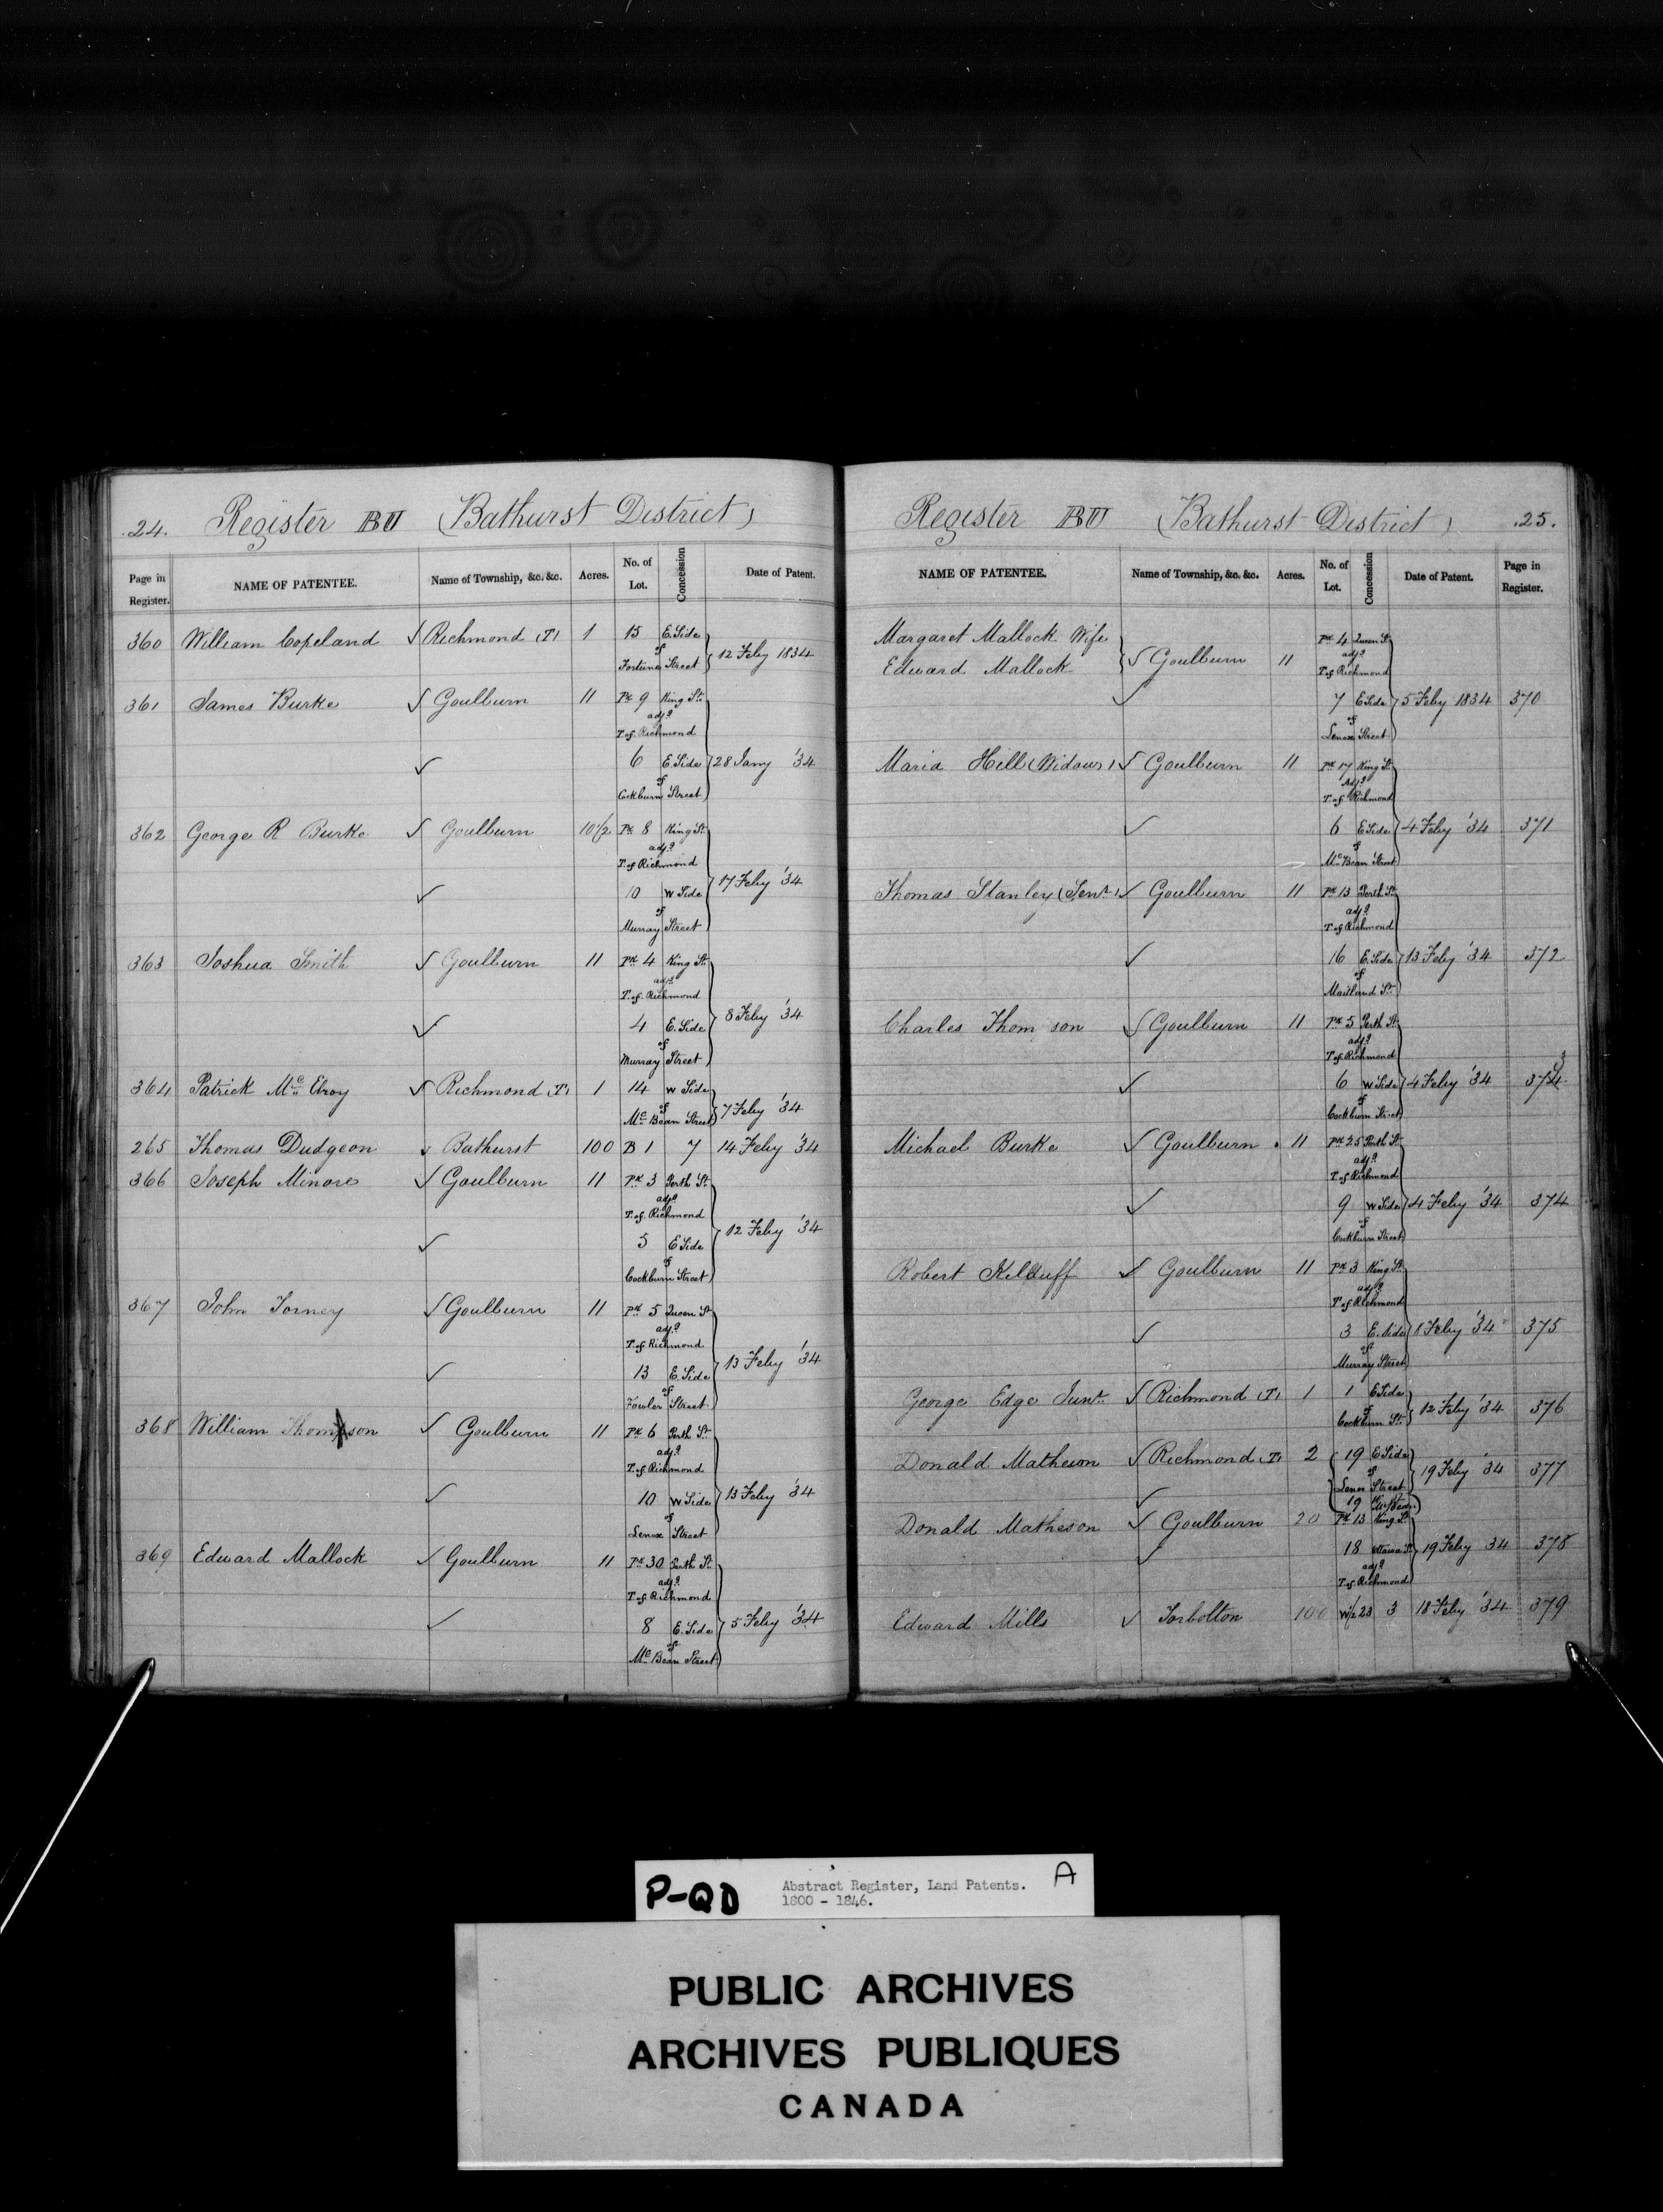 .24. Register BU (Bathurst District)
Page in Register. NAME OF PATENTEE. Name of Township, &c. &c. Acres. No. of Lot. Concession Date of Patent.
360 William Copeland ✓ Richmond (T) 1 15 E. Side
of
Fortune Street } 12 Feby 1834
361 James Burke ✓ Goulburn 11 Pk 9 King St.
adj.g
T. of Richmond
✓ 6 E. Side } 28 Jany '34
of
Cockburn Street
362 George R Burke ✓ Goulburn 10 1/2 Pk 8 King St.
adj.g
T. of Richmond
✓ 10 W Side } 17 Feby '34
of
Murray Street
363 Joshua Smith ✓ Goulburn 11 Pk 4 King St.
adj.g
T. of Richmond
✓ 4 E. Side } 8 Feby '34
of
Murray Street
364 Patrick Mc Elroy ✓ Richmond (T) 1 14 W Side
of
Mc Bean Street } 7 Feby '34
265 Thomas Dudgeon ✓ Bathurst 100 B 1 7 14 Feby '34
366 Joseph Minore ✓ Goulburn 11 Pk 3 Perth St.
adj.g
T. of Richmond
✓ 5 E Side } 12 Feby '34
of
Cockburn Street
367 John Torney ✓ Goulburn 11 Pk 5 Queen St
adj.g
T. of Richmond
✓ 13 E. Side } 13 Feby '34
of
Fowler Street
368 William Thompson ✓ Goulburn 11 Pk 6 Perth St.
adj.g
T. of Richmond
✓ 10 W Side } 13 Feby '34
of
Lenox Street
369 Edward Mallock ✓ Goulburn 11 Pk 30 Perth St.
adj.g
T of Richmond
✓ 8 E. Side } 5 Feby '34
of
Mc Bean Street
Register BU (Bathurst District) .25.
NAME OF PATENTEE. Name of Township, &c. &c. Acres. No. of Lot. Concession Date of Patent. Page in Register.
Margaret Mallock Wife
Edward Mallock } ✓ Goulburn 11 Pk 4 Queen St
adj.g
T. of Richmond
✓ 7 E Side } 5 Feby 1834 370
of
Lenox Street
Maria Hill (Widow) ✓ Goulburn 11 Pk 17 King St.
Adj.g
T. of Richmond
✓ 6 E Side } 4 Feby '34 371
of
Mc Bean Street
Thomas Stanley (Senr) ✓ Goulburn 11 Pk 13 Perth St.
adj.g
T. of Richmond
✓ 16 E. Side } 13 Feby '34 372
of
Maitland St.
Charles Thom son ✓ Goulburn 11 Pk 5 Perth St.
adj.g
T. of Richmond
✓ 6 W Side } 4 Feby '34 373
of
Cockburn Street
Michael Burke ✓ Goulburn 11 Pk 25 Perth St.
adj.g
T. of Richmond
✓ 9 W Side } 4 Feby '34 374
of
Cockburn Street
Robert Kilduff ✓ Goulburn 11 Pk 3 King St.
adj.g
T of Richmond
✓ 3 E. Side } 8 Feby '34 375
of
Murray Street
George Edge Junr. ✓ Richmond (T) 1 1 E Side
of
Cockburn St. } 12 Feby '34 376
Donald Matheson ✓ Richmond (T) 2 { 19 E Side
of
Lenox Street } 19 Feby '34 377
✓ 19 McBean
Donald Matheson ✓ Goulburn 20 Pk 13 King St.
✓ 18 Ottawa St. } 19 Feby 34 378
adj.g
T. of Richmond
Edward Mills ✓ Torbolton 100 W1/2 23 3 18 Feby '34 379
P-QD Abstract Register, Land Patents. A
1800 - 1846.
PUBLIC ARCHIVES
ARCHIVES PUBLIQUES
CANADA